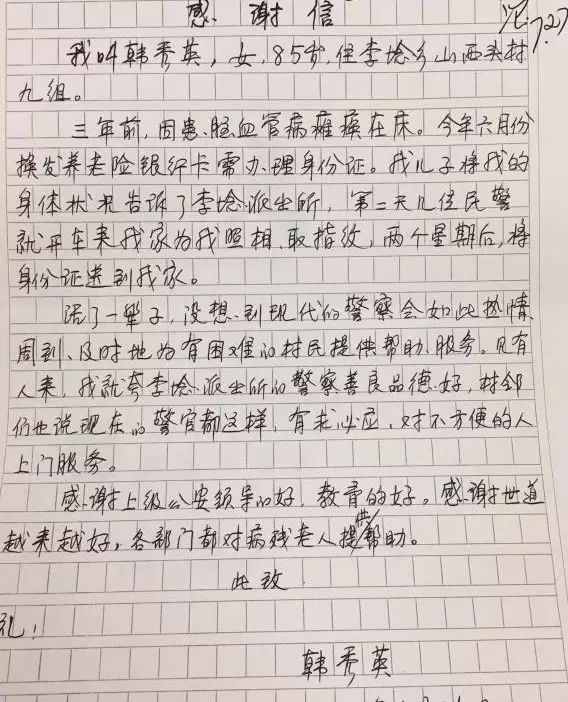 感谢信
7.27
我叫韩秀英,女,85岁,住李埝乡山西头村
九组。
三年前,因患脑血管病瘫痪在床。今年六月份
换发养老险银行卡需办理身份证。我儿子将我的
身体状况告诉了李埝派出所,第二天几位民警
就开车来我家为我照相、取指纹,两个星期后,将
身份证送到我家。
活了一辈子,没想到现代的警察会如此热情
周到、及时地为有困难的村民提供帮助、服务。见有
人来,我就夸李埝派出所的警察善良品德好,村邻
们也说现在的警官都这样,有求必应,对不方便的人
上门服务。
感谢上级公安领导的好,教育的好。感谢世道
越来越好,各部门都对病残老人提供帮助。
此致
礼!
韩秀英